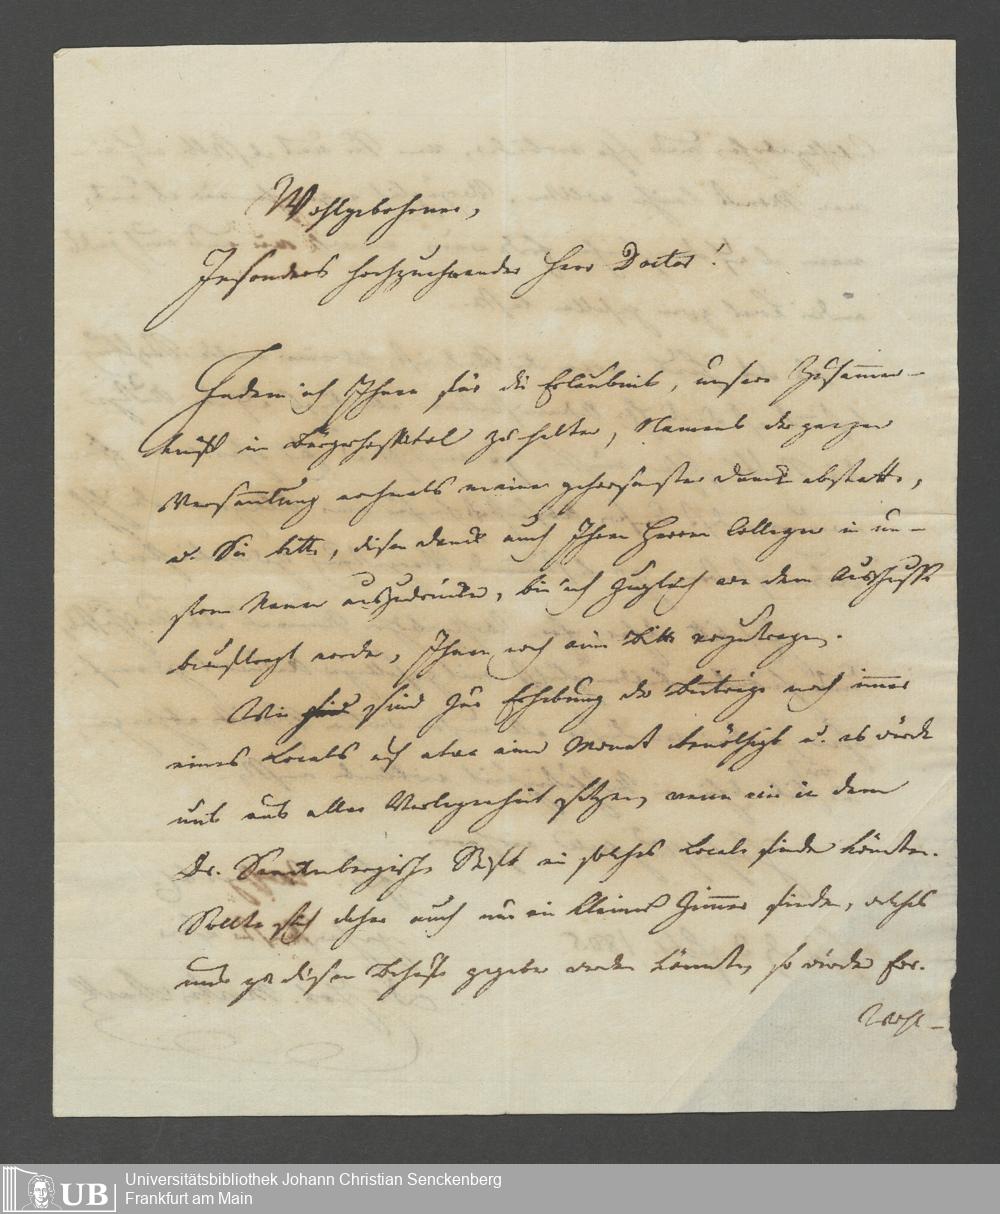 Wohlgebohrner,
Insonders hochzuehrender Herr Doctor!
Indem ich Ihnen für die Erlaubniß, unsere Zusammen-
kunft im Bürgerhospital zu halten, Namens der ganzen
Versammlung nochmals meinen gehorsamsten Danck abstatte,
u. Sie bitte, diesen Danck auch Ihren Herren Collegen in un-
serm Namen auszudrücken, bin ich zugleich von dem Ausschusse
beauftragt worden, Ihnen noch eine Bitte vorzutragen.
Wir sind zur Erhebung der Beiträge noch immer
eines Locals auf etwa einen Monat benöthigt u. es würde
uns aus aller Verlegenheit setzen, wenn wir in dem
Dr. Senckenbergischen Stift ein solches Local finden könnten.
Sollte sich daher auch nur ein kleines Zimmer finden, welches
uns zu diesem Behufe gegeben werden könnte, so würden Ew.
Wohl-
Universitätsbibliothek Johann Christian Senckenberg
Frankfurt am Main
UB